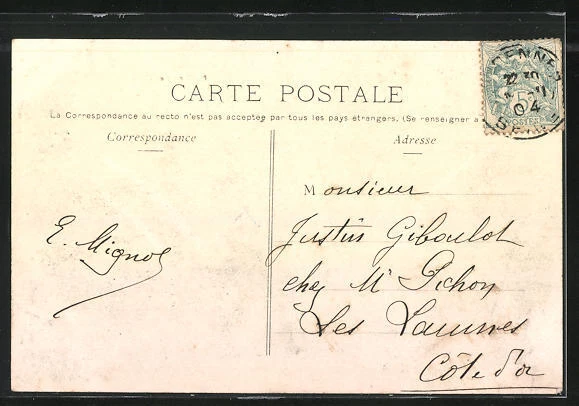 CARTE POSTALE
La Correspondance au recto n'est pas acceptée par tous les pays étrangers. (Se renseigner a
Correspondance
Adresse
Monsieur
Justin Giboulot
chez Mr Pichon
Les Laumes
Côte d'or
E. Mignot
5
POSTES
04